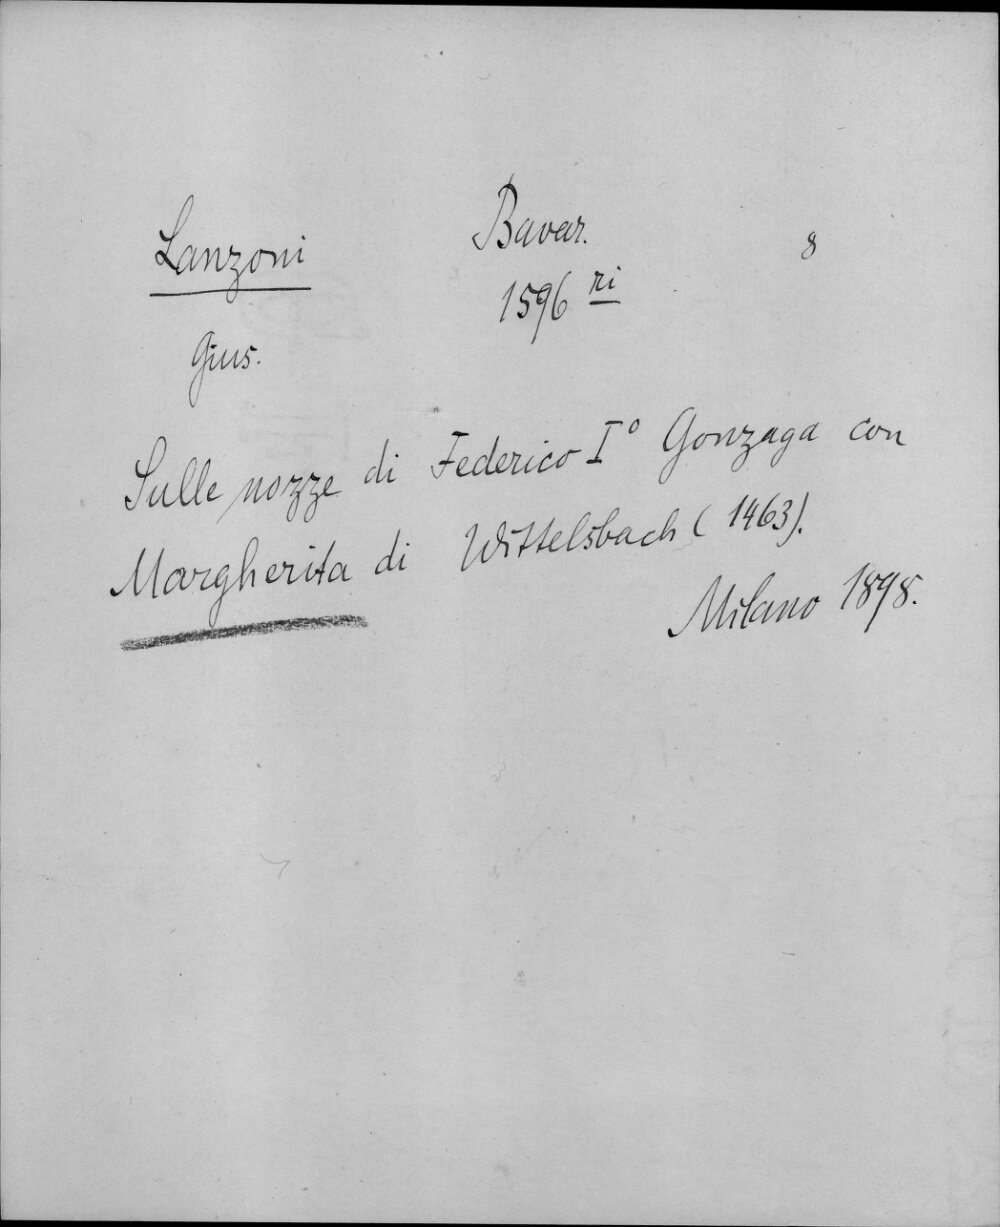 Lanzoni
Gius.
Bavar. 8
1596 ri
Sulle nozze di Federico I° Gonzaga con
Margherita di Wittelsbach (1463).
Milano 1898.